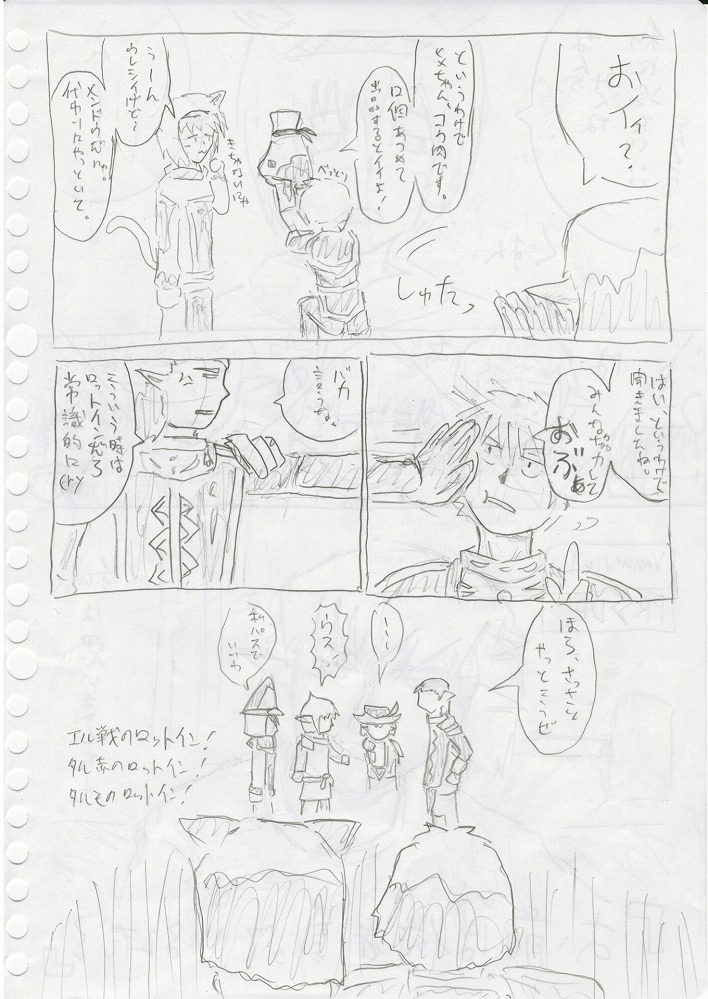 おイィ？
というわけで
ヒメちゃん、コカ肉です。
12個あつめて
出品するとイイよ！
べっとり
しゅたっ
きちゃないにゃ
うーん
ウレシイけど～
メンドウだにゅ。
代わりにやっといて。
はい、というわけで
聞きましたね。
みんな協力して
おぶぁ
バカ
言うな、
こういう時は
ロットインだろ
常識的に(ry
ほら、さっさと
やっとこうぜ
……
うっス…
私パスで
いいわ
エル戦のロットイン！
タル赤のロットイン！
タルモのロットイン！